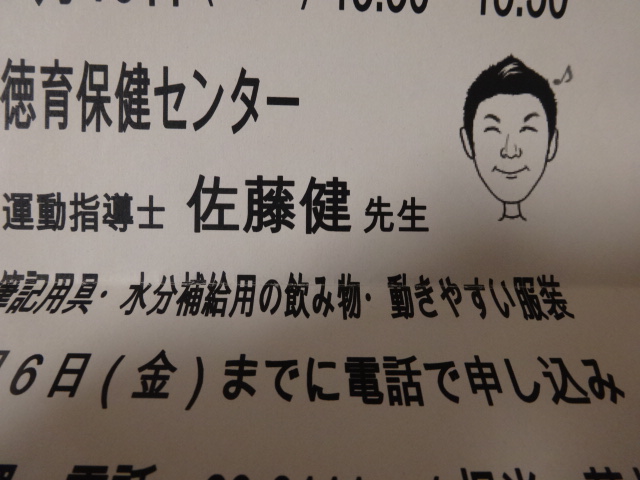 徳育保健センター
運動指導士 佐藤健 先生
筆記用具・水分補給用の飲み物・動きやすい服装
6日(金)までに電話で申し込み